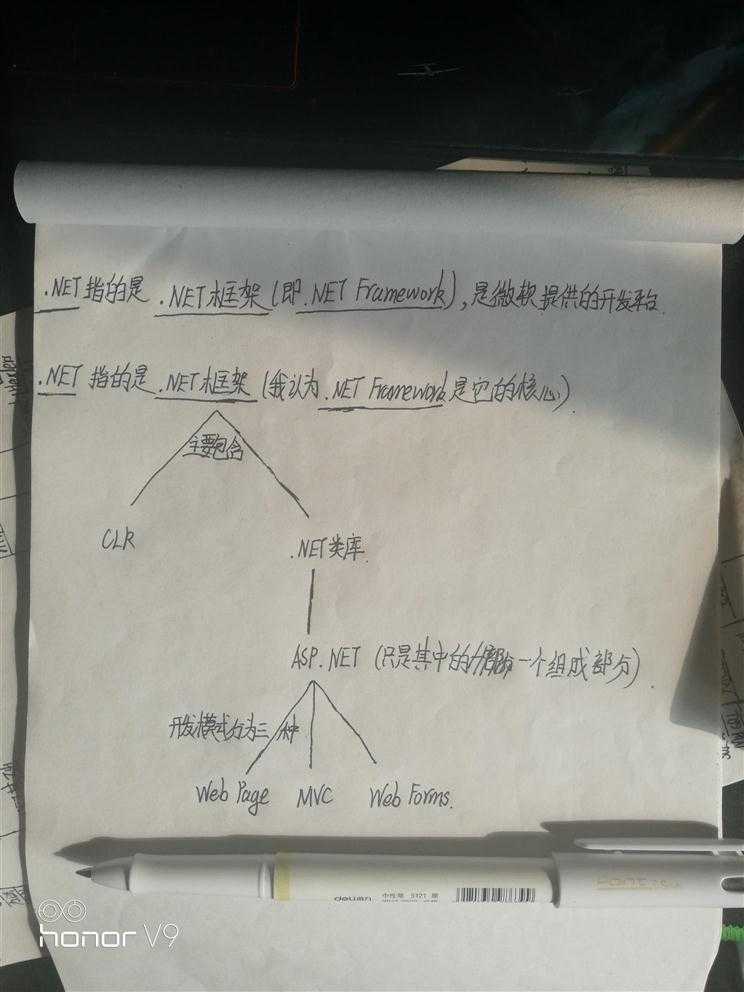 .NET指的是 .NET框架(即 .NET Framework),是微软提供的开发平台.
.NET 指的是 .NET框架(我认为 .NET Framework是它的核心).
主要包含
CLR
.NET类库.
ASP.NET (只是其中的一个组成部分).
开发模式分为三种
Web Page MVC Web Forms.
deli得力 中性笔 S121 黑
honor V9